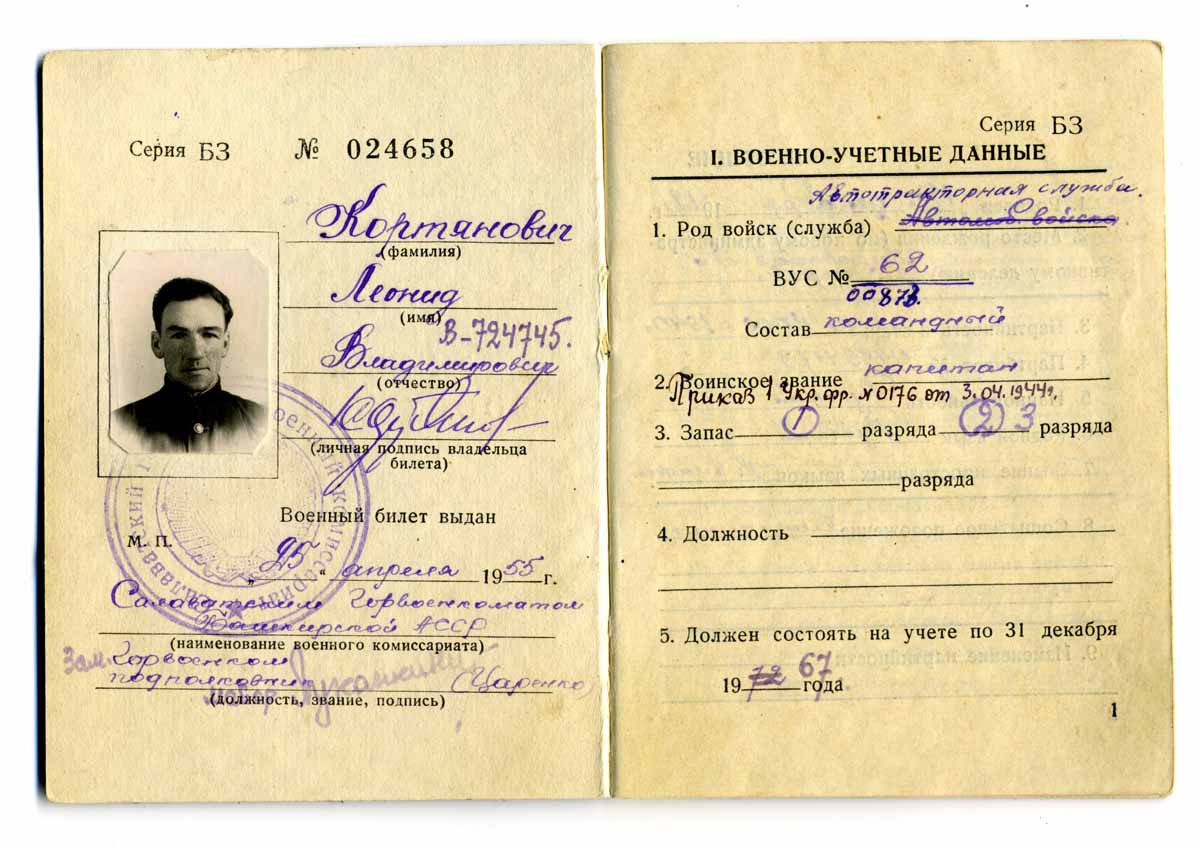 Серия БЗ № 024658
Кортянович
(фамилия)
Леонид
(имя)
В-724745.
Владимирович
(отчество)
(личная подпись владельца
билета)
Военный билет выдан
М. П.
„25“ апреля 1955 г.
Салаватским Горвоенкоматом
Башкирской АССР
(наименование военного комиссариата)
Зам. Горвоенком
подполковник (Царенко)
майор
(должность, звание, подпись)
Серия БЗ
I. ВОЕННО-УЧЕТНЫЕ ДАННЫЕ
Автотракторная служба.
1. Род войск (служба) Автомоб войска
ВУС № 62
Состав командный
2. Воинское звание капитан
Приказ 1 Укр. фр. №0176 от 3.04.1944г.
3. Запас 1 разряда 2 3 разряда
разряда
4. Должность
5. Должен состоять на учете по 31 декабря
1972 67 года
1